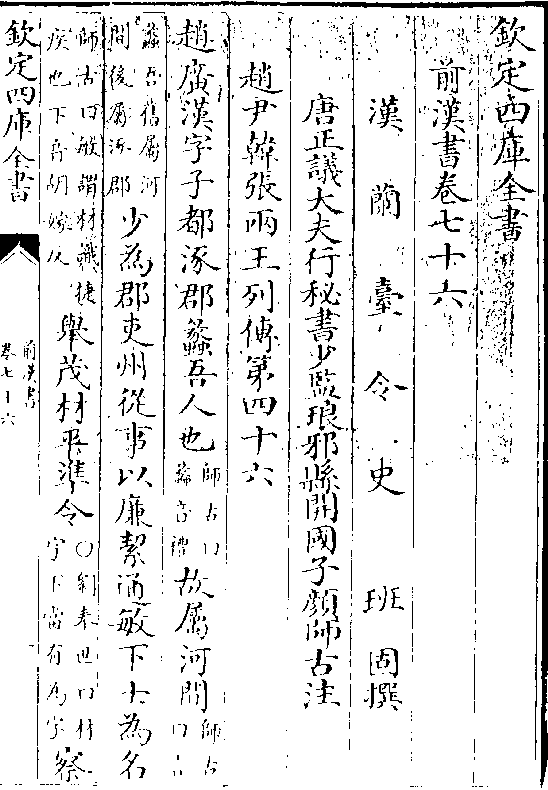 欽定四庫全書
前漢書卷七十六
漢蘭臺令史班固撰
唐正議大夫行秘書少監琅邪縣開國子顏師古注
趙尹韓張兩王列傳第四十六
趙廣漢字子都涿郡蠡吾人也師古曰蠡音禮故屬河間師古曰言
蠡吾舊屬河間後屬涿郡少為郡吏州從事以廉絜通敏下士為名
師古曰敏謂材識捷疾也下音胡嫁反舉茂材平準令○劉奉世曰材字下當有為字察
欽定四庫全書
前漢書
卷七十六